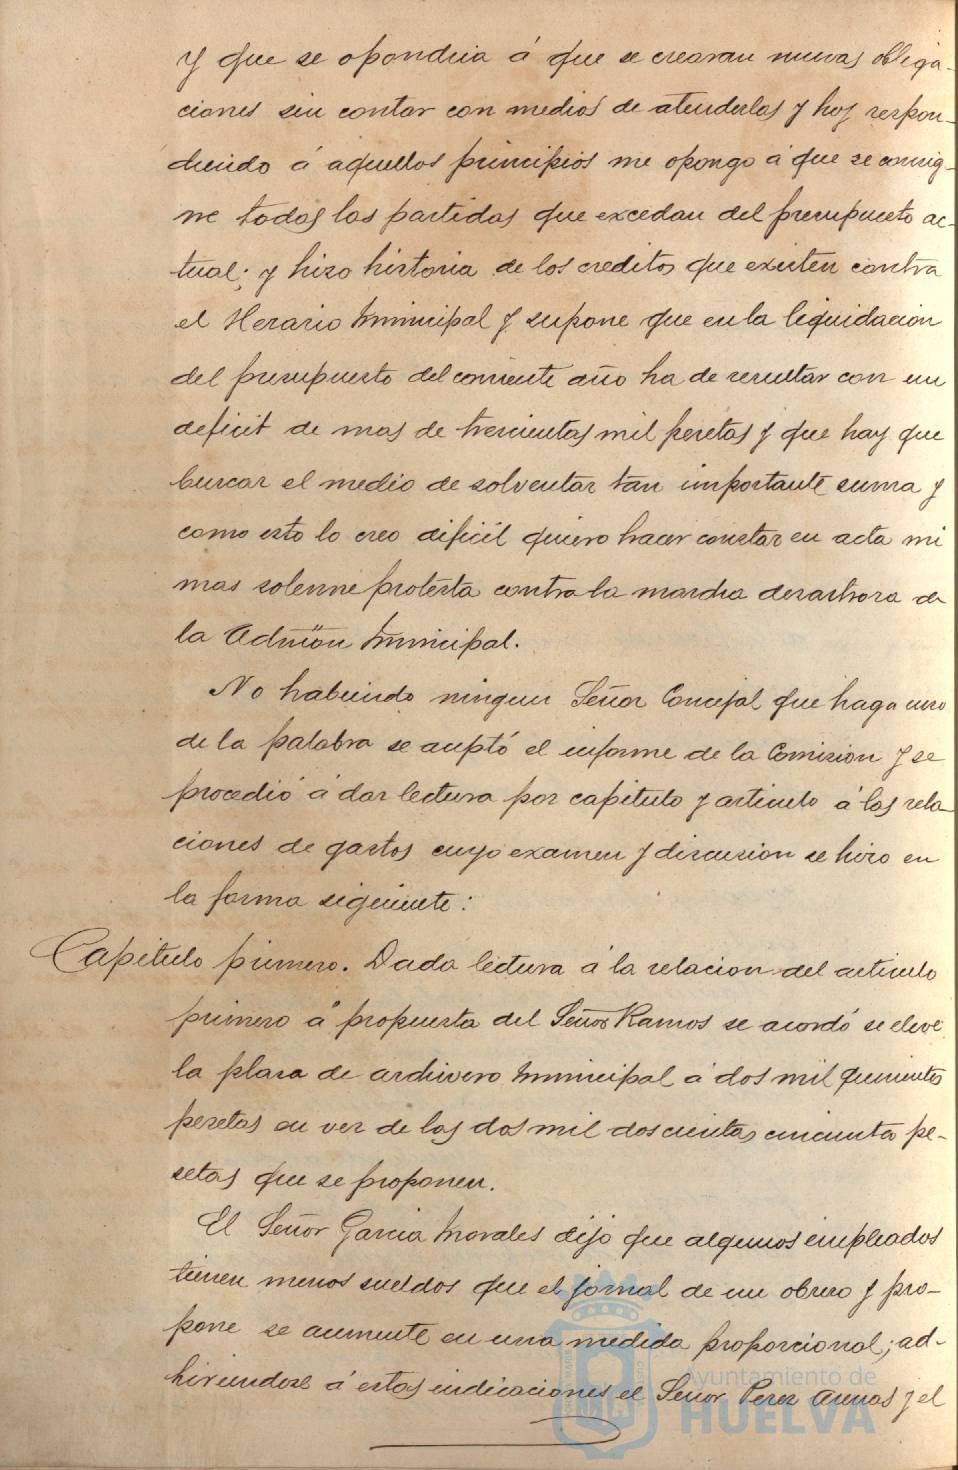 y que se opondria á que se crearan nuevas obliga-
ciones sin contar con medios de atenderlas y hoy respon-
diendo á aquellos principios me opongo á que se consig-
ne todas las partidas que excedan del presupuesto ac-
tual; y hizo historia de los creditos que existen contra
el Herario Municipal y supone que en la liquidacion
del presupuesto del corriente año ha de resultar con un
deficit de mas de trescientas mil pesetas y que hay que
buscar el medio de solventar tan importante suma y
como esto lo creo dificil quiero hacer constar en acta mi
mas solemne protesta contra la marcha desastrosa de
la Admōn Municipal.
No habiendo ningun Señor Concejal que haga uso
de la palabra se aceptó el informe de la Comision y se
procedió á dar lectura por capitulo y articulo á las rela-
ciones de gastos cuyo examen y discusion se hizo en
la forma siguiente:
Capitulo primero. Dada lectura á la relacion del articulo
primero á propuesta del Señor Ramos se acordó se eleve
la plaza de archivero Municipal á dos mil quinientas
pesetas en vez de las dos mil doscientas cincuenta pe-
setas que se proponen.
El Señor Garcia Morales dijo que algunos empleados
tienen menos sueldos que el jornal de un obrero y pro-
pone se aumente en una medida proporcional; ad-
hiriendose á estas indicaciones el Señor Perez Arenas y el
Ayuntamiento de
HUELVA